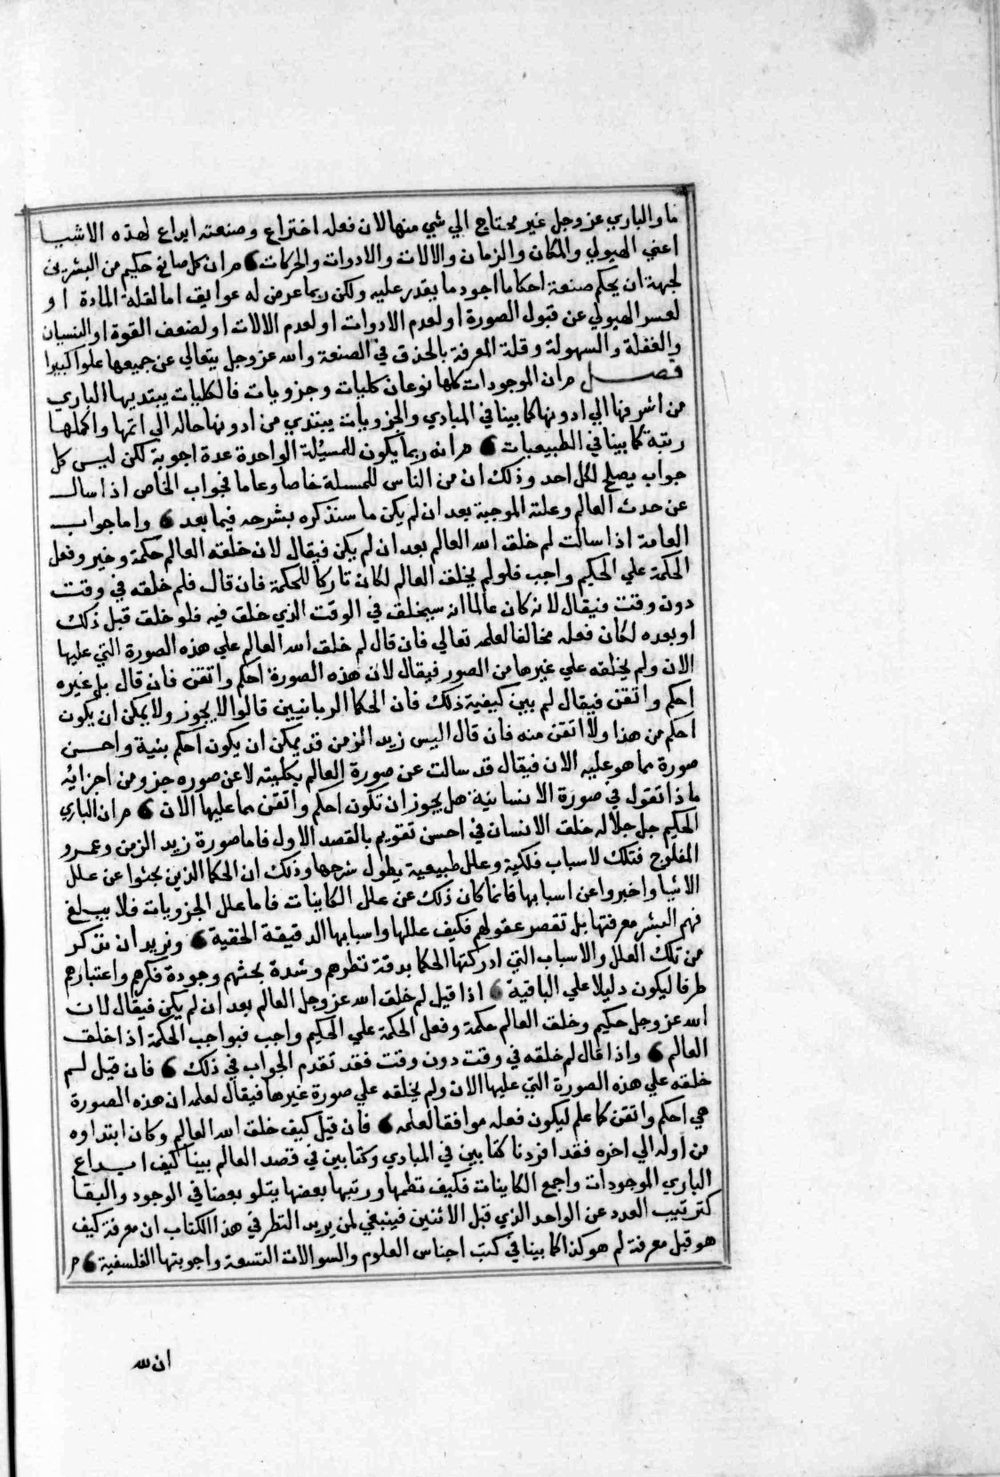 ما والباري عز وجل غير محتاج الي شي منها لان فعله اختراع وصنعته ابداع لهذه الاشيا
اعني الهيولي والمكان والزمان والالات والادوات والحركات ٥ م ان كل صانع حكيم من البشر في
لجهة ان يحكم صنعة احكاما اجود ما يقدر عليه ولكن ربما عرض له عوايق اما لقلة المادة او
لعسر الهيولي عن قبول الصورة او لعدم الادوات او لعدم الالات او لضعف القوة او النسيان
والغفلة والسهولة وقلة المعرفة بالحذق في الصنعة والله عز وجل يتعالي عن جميعها علوا كبيرا
فصل م ان الموجودات كلها نوعان كليات وجزويات فالكليات يبتديها الباري
من اشرفها الي ادونها كما بينا في المبادي والجزويات يبتدي من ادونها حاله الي اتمها واكملها
رتبة كما بينا في الطبيعيات ٥ م انه ربما يكون للمسئلة الواحدة عدة اجوبة لكن ليس كل
جواب يصلح لكل احد وذلك ان من الناس للمسلة خاصا وعاما فجواب الخاص اذا سال
عن حدث العالم وعلته الموجبة بعد ان لم يكن ما سنذكره بشرحه فيما بعد ٥ واما جواب
العامة اذا سالت لم خلق الله العالم بعد ان لم يكن فيقال لان خلقه العالم حكمة وخير وفعل
الحكمة علي الحكيم واجب فلو لم يخلق العالم لكان تاركا للحكمة فان قال فلم خلقه في وقت
دون وقت فيقال لانه كان عالما انه سيخلق في الوقت الذي خلق فيه فلو خلق قبل ذلك
او بعده لكان فعله مخالفا لعلمه تعالي فان قال لم خلق الله العالم علي هذه الصورة التي عليها
الان ولم يخلقه علي غيرها من الصور فيقال لان هذه الصورة احكم واتقن فان قال بل غيره
احكم واتقن فيقال لم يبين كيفية ذلك فان الحكما الربانيين قالوا لا يجوز ولا يمكن ان يكون
احكم من هذا ولا اتقن منه فان قال اليس زيد الزمن قد يمكن ان يكون احكم بنية واحسن
صورة مما هو عليه الان فيقال قد سالت عن صورة العالم بكليته لا عن صوره جزو من اجزائه
ماذا تقول في صورة الانسانية هل يجوز ان تكون احكم واتقن مما عليها الان ٥ م ان الباري
الحكيم جل جلاله خلق الانسان في احسن تقويم بالقصد الاول فاما صورة زيد الزمن وعمرو
المفلوج فتلك لاسباب فلكية وعلل طبيعية يطول شرحها وذلك ان الحكما الذين بحثوا عن علل
الاشيا واخبروا عن اسبابها فانما كان ذلك عن علل الكاينات فاما علل الجزويات فلا يبلغ
فهم البشر معرفتها بل تقصر عقولهم فكيف عللها واسبابها الدقيقة الخفية ٥ ونريد ان نذكر
من تلك العلل والاسباب التي ادركتها الحكما بدقة نظرهم وشدة بحثهم وجودة فكرهم واعتبارهم
طرفا ليكون دليلا علي الباقية ٥ اذا قيل لم خلق الله عز وجل العالم بعد ان لم يكن فيقال لان
الله عز وجل حكيم وخلق العالم حكمة وفعل الحكمة علي الحكيم واجب فبواجب الحكمة اذا خلق
العالم ٥ واذا قال لم خلقه في وقت دون وقت فقد تقدم الجواب في ذلك ٥ فان قيل لم
خلقه علي هذه الصورة التي عليها الان ولم يخلقه علي صورة غيرها فيقال لعلمه ان هذه الصورة
هي احكم واتقن كما علم ليكون فعله موافقا لعلمه ٥ فان قيل كيف خلق الله العالم وكان ابتداوه
من اوله الي اخره فقد افردنا كتابين في المبادي وكتابين في قصد العالم بينا كيف ابداع
الباري الموجودات واجمع الكاينات فكيف نظمها ورتبها بعضها يتلو بعضا في الوجود والبقا
كترتيب العدد عن الواحد الذي قبل الاثنين فينبغي لمن يريد النظر في هذا الكتاب ان معرفة كيف
هو قبل معرفة لم هو كذا كما بينا في كتب اجناس العلوم والسوالات التسعة واجوبتها الفلسفية ٥ م
ان لله